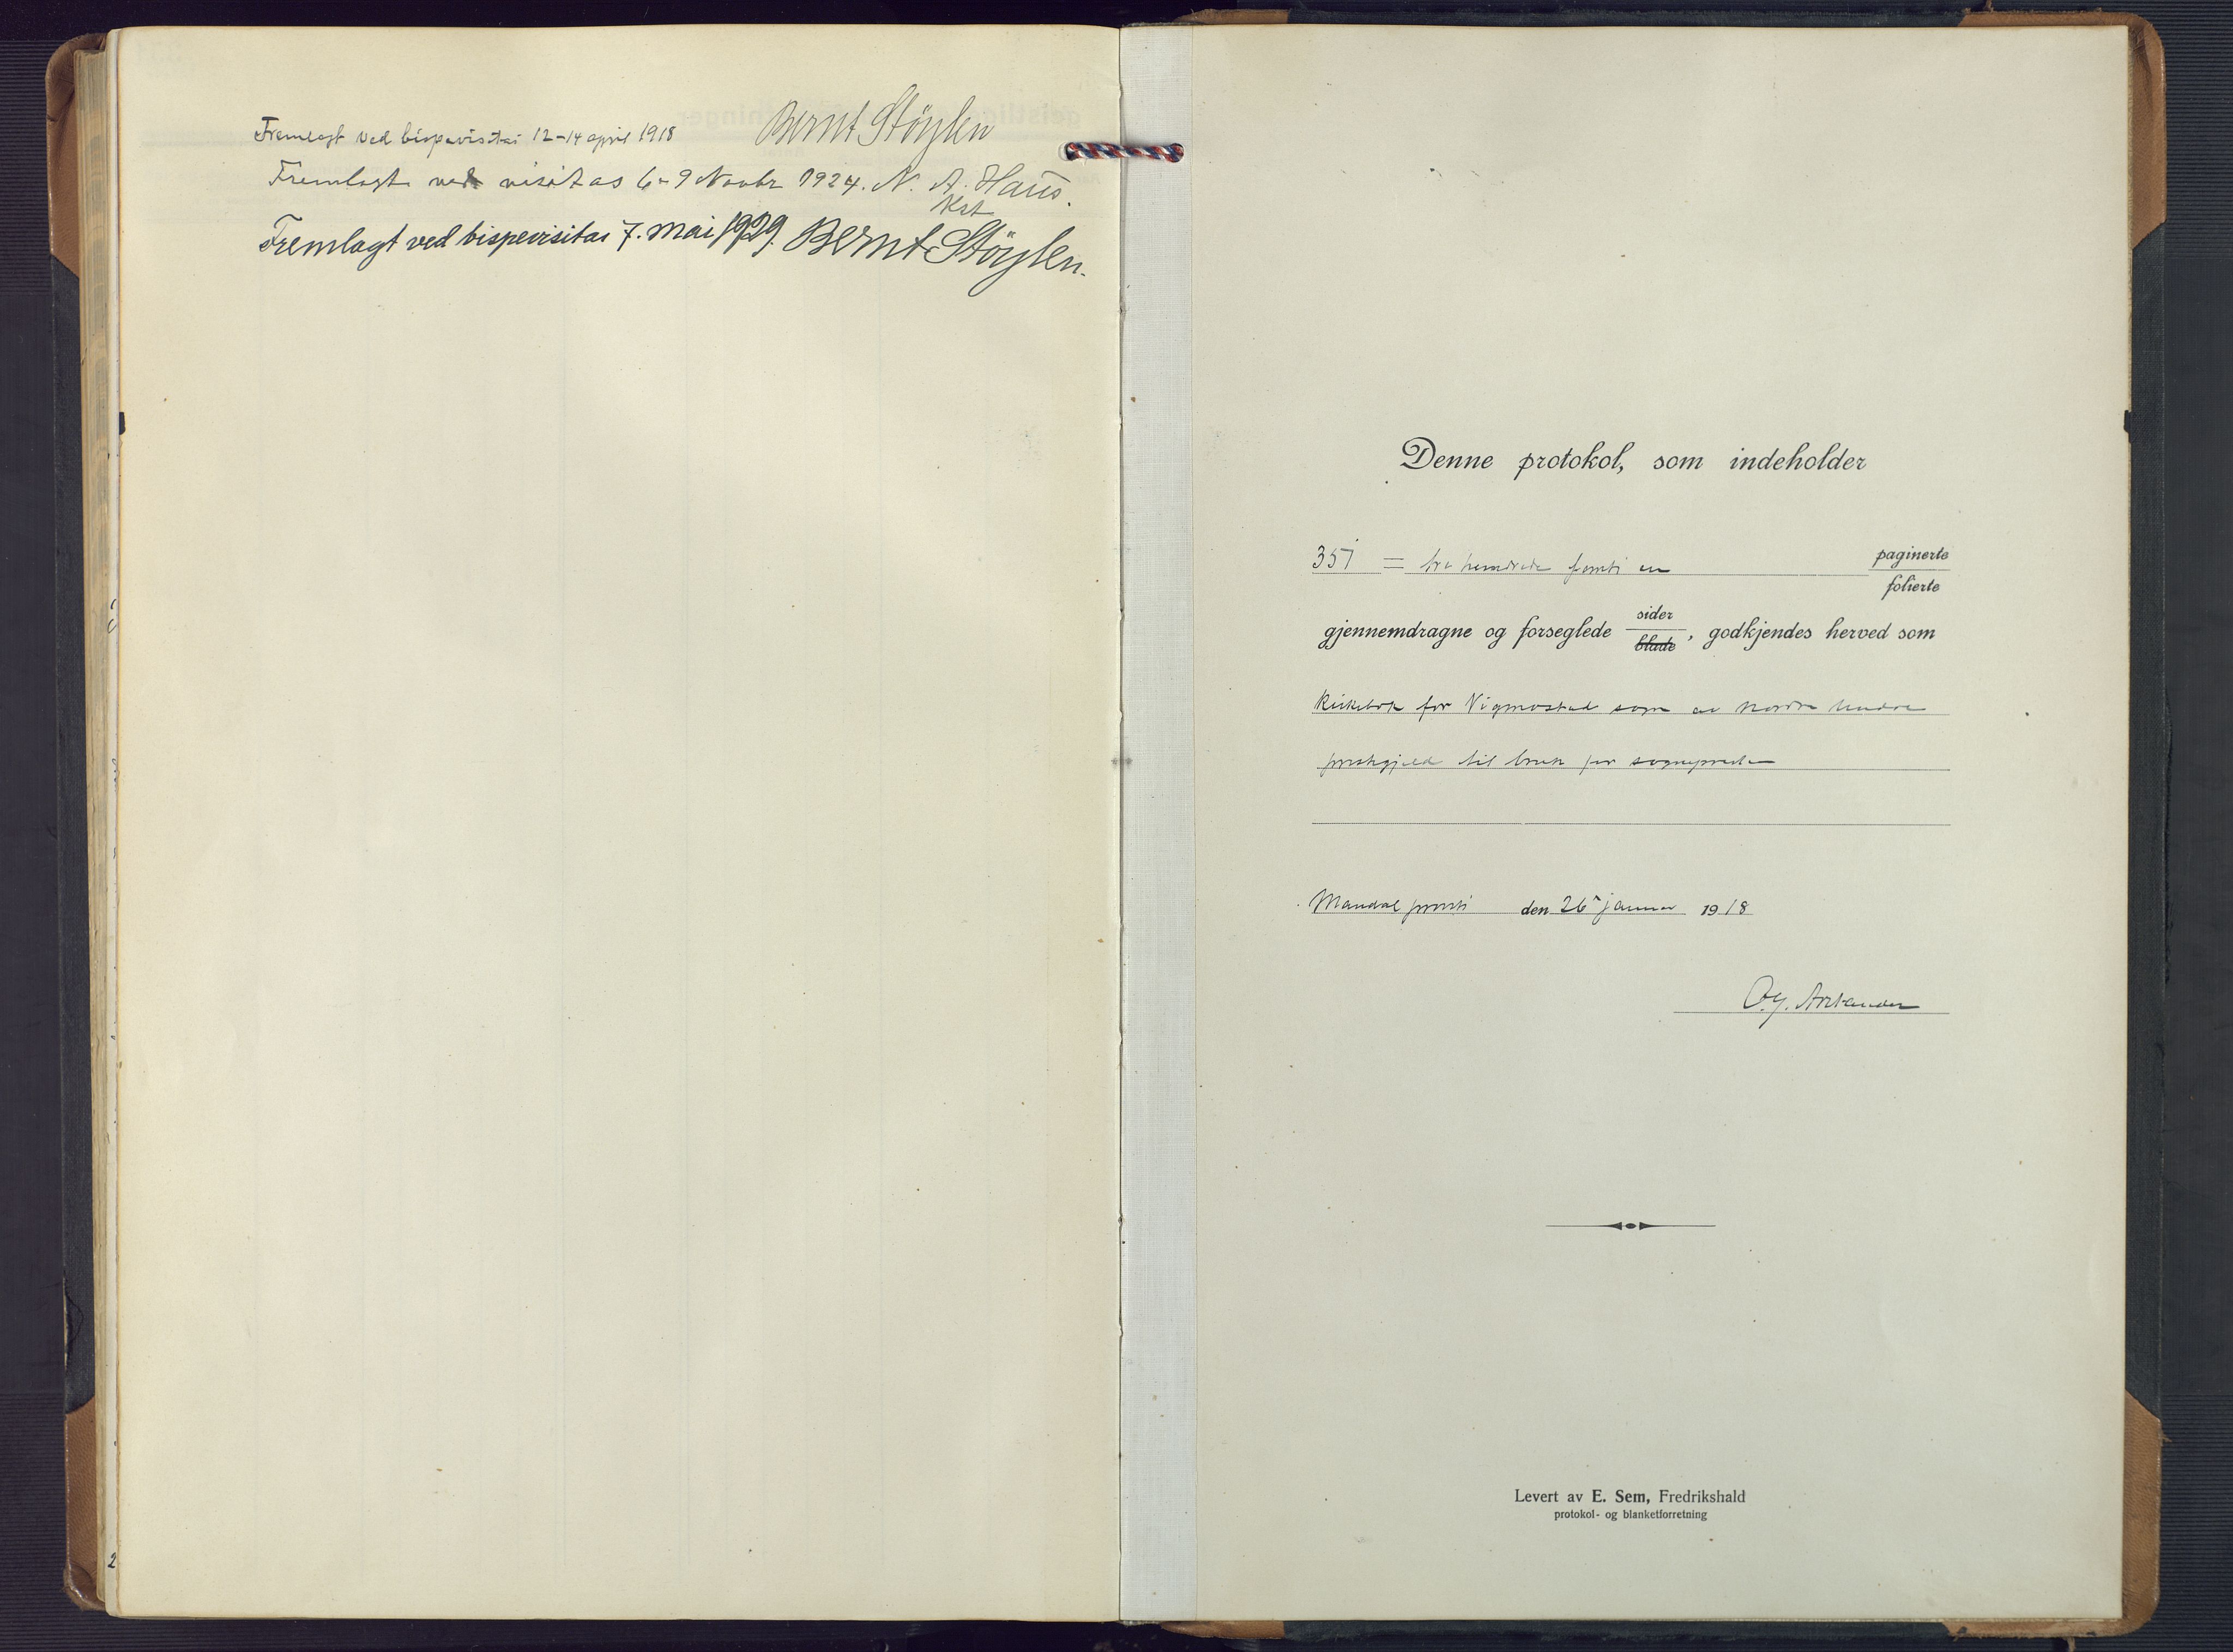 Fremlagt ved bispevisitas 12-14 april 1918 Bernt Støylen
Fremlagt ved visitas 6-9 Novbr 1924. N. A. Haus.
Kst
Fremlagt ved bispevisitas 7. mai 1929. Bernt Støylen.
Denne protokol, som indeholder
351 = tre hundrede femti en paginerte
folierte
gjennemdragne og forseglede sider
blade, godkjendes herved som
Kirkebok for Vigmostad sogn av Nordre Undal
prestegjeld til bruk for sognepresten
Mandal prosti den 26 januar 1918
Levert av E. Sem, Fredrikshald
protokol- og blanketforretning